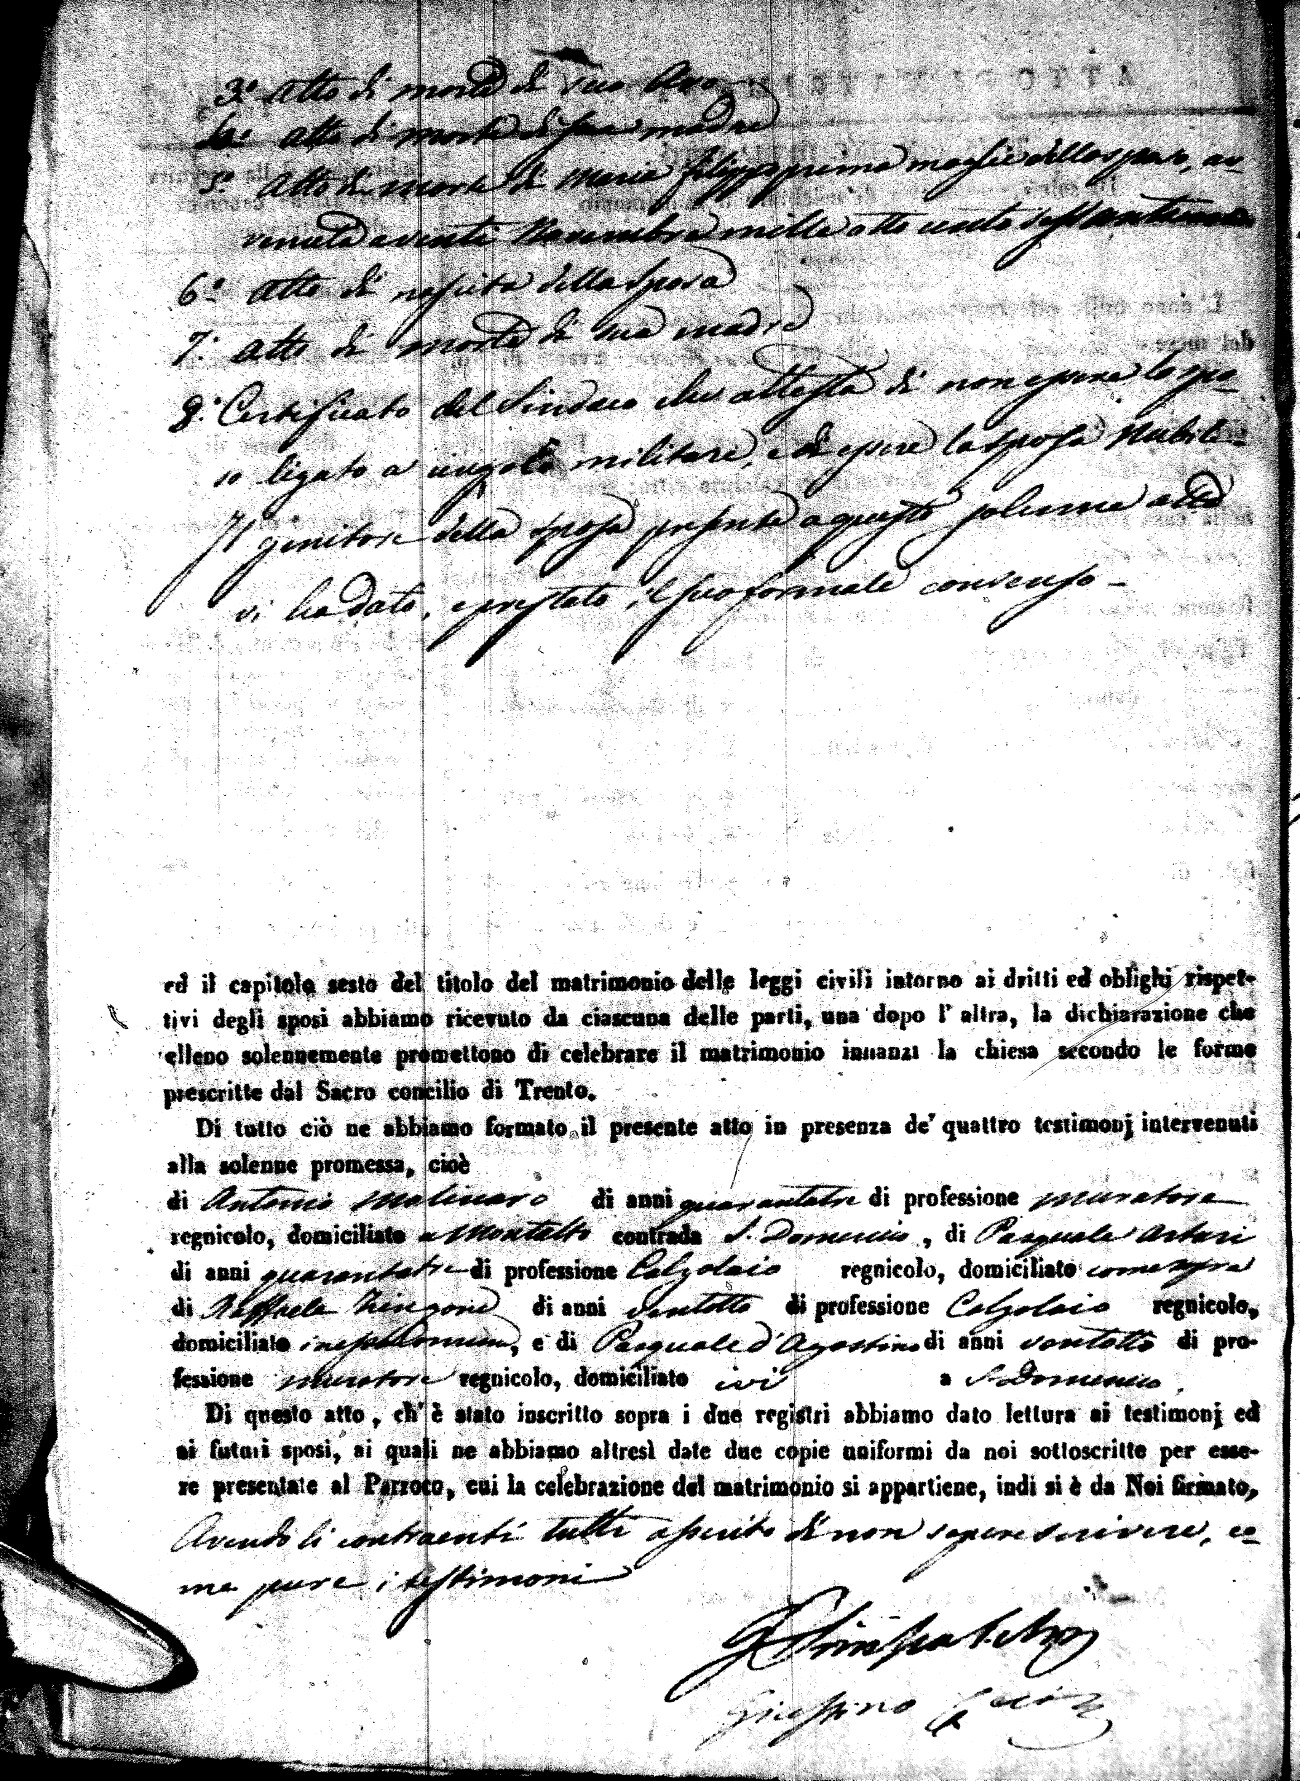 3.° Atto di morte di suo Avo
4.° Atto di morte di sua madre
5.° Atto di morte di Maria Filippa prima moglie dello sposo, av-
venuta a venti Novembre mille otto cento
6.° Atto di nascita della Sposa
7.° Atto di morte di sua madre
8.° Certificato del Sindaco che attesta di non essere lo spo-
so ligato a vincolo militare, e di essere la sposa Nubile
Il genitore della sposa presente a questo solenne atto
vi ha dato, e prestato il suo formale consenso –
ed il capitolo sesto del titolo del matrimonio delle leggi civili intorno ai dritti ed obblighi rispet-
tivi degli sposi abbiamo ricevuto da ciascuna delle parti, una dopo l'altra, la dichiarazione che
elleno solennemente promettono di celebrare il matrimonio innanzi la chiesa secondo le forme
prescritte dal Sacro concilio di Trento.
Di tutto ciò ne abbiamo formato il presente atto in presenza de' quattro testimonj intervenuti
alla solenne promessa, cioè
di Antonio Molinaro di anni quarantatre di professione muratore
regnicolo, domiciliato a Montalto contrada S. Domenico, di Pasquale Artusi
di anni quarantatre di professione Calzolaio regnicolo, domiciliato come sopra
di Raffaele Zingone di anni ventotto di professione Calzolaio regnicolo,
domiciliato , e di Pasquale d'Agostino di anni ventotto di pro-
fessione muratore regnicolo, domiciliato ivi a S. Domenico.
Di questo atto, ch'è stato inscritto sopra i due registri abbiamo dato lettura ai testimonj ed
ai futuri sposi, ai quali ne abbiamo altresì date due copie uniformi da noi sottoscritte per esse-
re presentate al Parroco, cui la celebrazione del matrimonio si appartiene, indi si è da Noi firmato,
Avendo li contraenti tutti asserito di non sapere scrivere, co-
me pure i testimoni